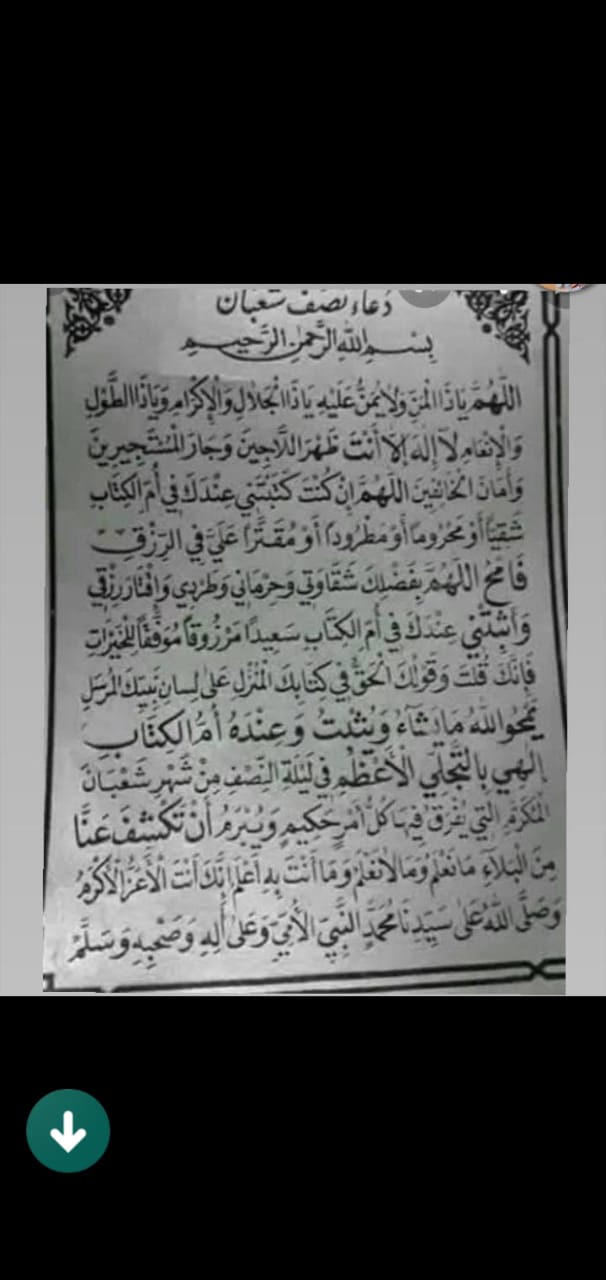 دعاء نصف شعبان
بِسْمِ اللهِ الرَّحْمٰنِ الرَّحِيمِ
اللَّهُمَّ يَاذَا الْمَنِّ وَلَا يُمَنُّ عَلَيْهِ يَاذَا الْجَلَالِ وَالْإِكْرَامِ وَيَاذَا الطَّوْلِ
وَالْإِنْعَامِ لَآ إِلٰهَ إِلَّا أَنْتَ ظَهْرَ اللَّاجِينَ وَجَارَ الْمُسْتَجِيرِينَ
وَأَمَانَ الْخَائِفِينَ اللَّهُمَّ إِنْ كُنْتَ كَتَبْتَنِي عِنْدَكَ فِي أُمِّ الْكِتَابِ
شَقِيًّا أَوْ مَحْرُومًا أَوْ مَطْرُودًا أَوْ مُقَتَّرًا عَلَيَّ فِي الرِّزْقِ
فَامْحُ اللَّهُمَّ بِفَضْلِكَ شَقَاوَتِي وَحِرْمَانِي وَطَرْدِي وَإِقْتَارَ رِزْقِي
وَأَثْبِتْنِي عِنْدَكَ فِي أُمِّ الْكِتَابِ سَعِيدًا مَرْزُوقًا مُوَفَّقًا لِلْخَيْرَاتِ
فَإِنَّكَ قُلْتَ وَقَوْلُكَ الْحَقُّ فِي كِتَابِكَ الْمُنْزَلِ عَلَى لِسَانِ نَبِيِّكَ الْمُرْسَلِ
يَمْحُو اللهُ مَا يَشَآءُ وَيُثْبِتُ وَعِنْدَهُ أُمُّ الْكِتَابِ
إِلٰهِي بِالتَّجَلِّي الْأَعْظَمِ فِي لَيْلَةِ النِّصْفِ مِنْ شَهْرِ شَعْبَانَ
الْمُكَرَّمِ الَّتِي يُفْرَقُ فِيهَا كُلُّ أَمْرٍ حَكِيمٍ وَيُبْرَمُ أَنْ تَكْشِفَ عَنَّا
مِنَ الْبَلَاءِ مَا نَعْلَمُ وَمَا لَا نَعْلَمُ وَمَا أَنْتَ بِهِ أَعْلَمُ إِنَّكَ أَنْتَ الْأَعَزُّ الْأَكْرَمُ
وَصَلَّى اللهُ عَلَى سَيِّدِنَا مُحَمَّدٍ النَّبِيِّ الْأُمِّيِّ وَعَلَى أَلِهِ وَصَحْبِهِ وَسَلَّمَ